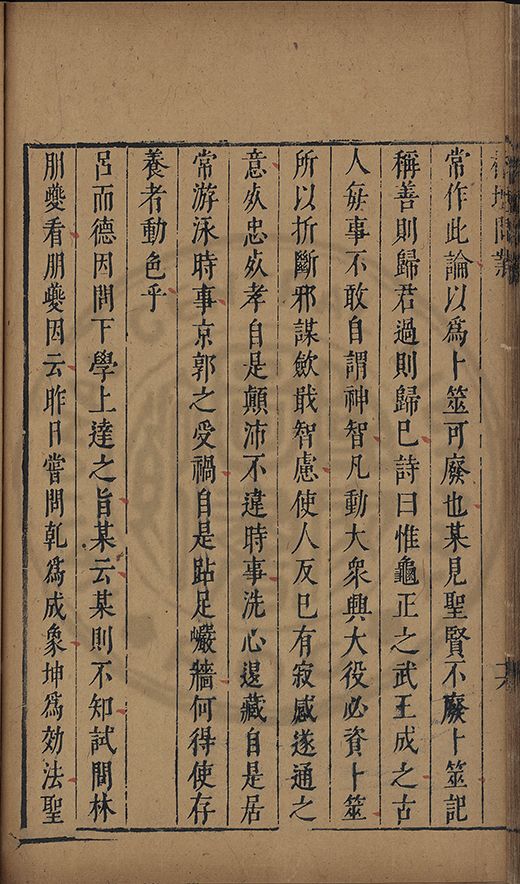 榕壇問業
常作此論以爲卜筮可廢也某見聖賢不廢卜筮記
稱善則歸君過則歸已詩曰惟龜正之武王成之古
人每事不敢自謂神智凡動大衆興大役必資卜筮
所以折斷邪謀斂戢智慮使人反已有寂感遂通之
意㸔忠㸔孝自是顛沛不違時事洗心退藏自是居
常游泳時事京郭之受禍自是跕足巖牆何得使存
養者動色乎
呂而德因問下學上達之旨某云某則不知試問林
朋夔看朋夔因云昨日嘗問乹爲成象坤爲効法聖